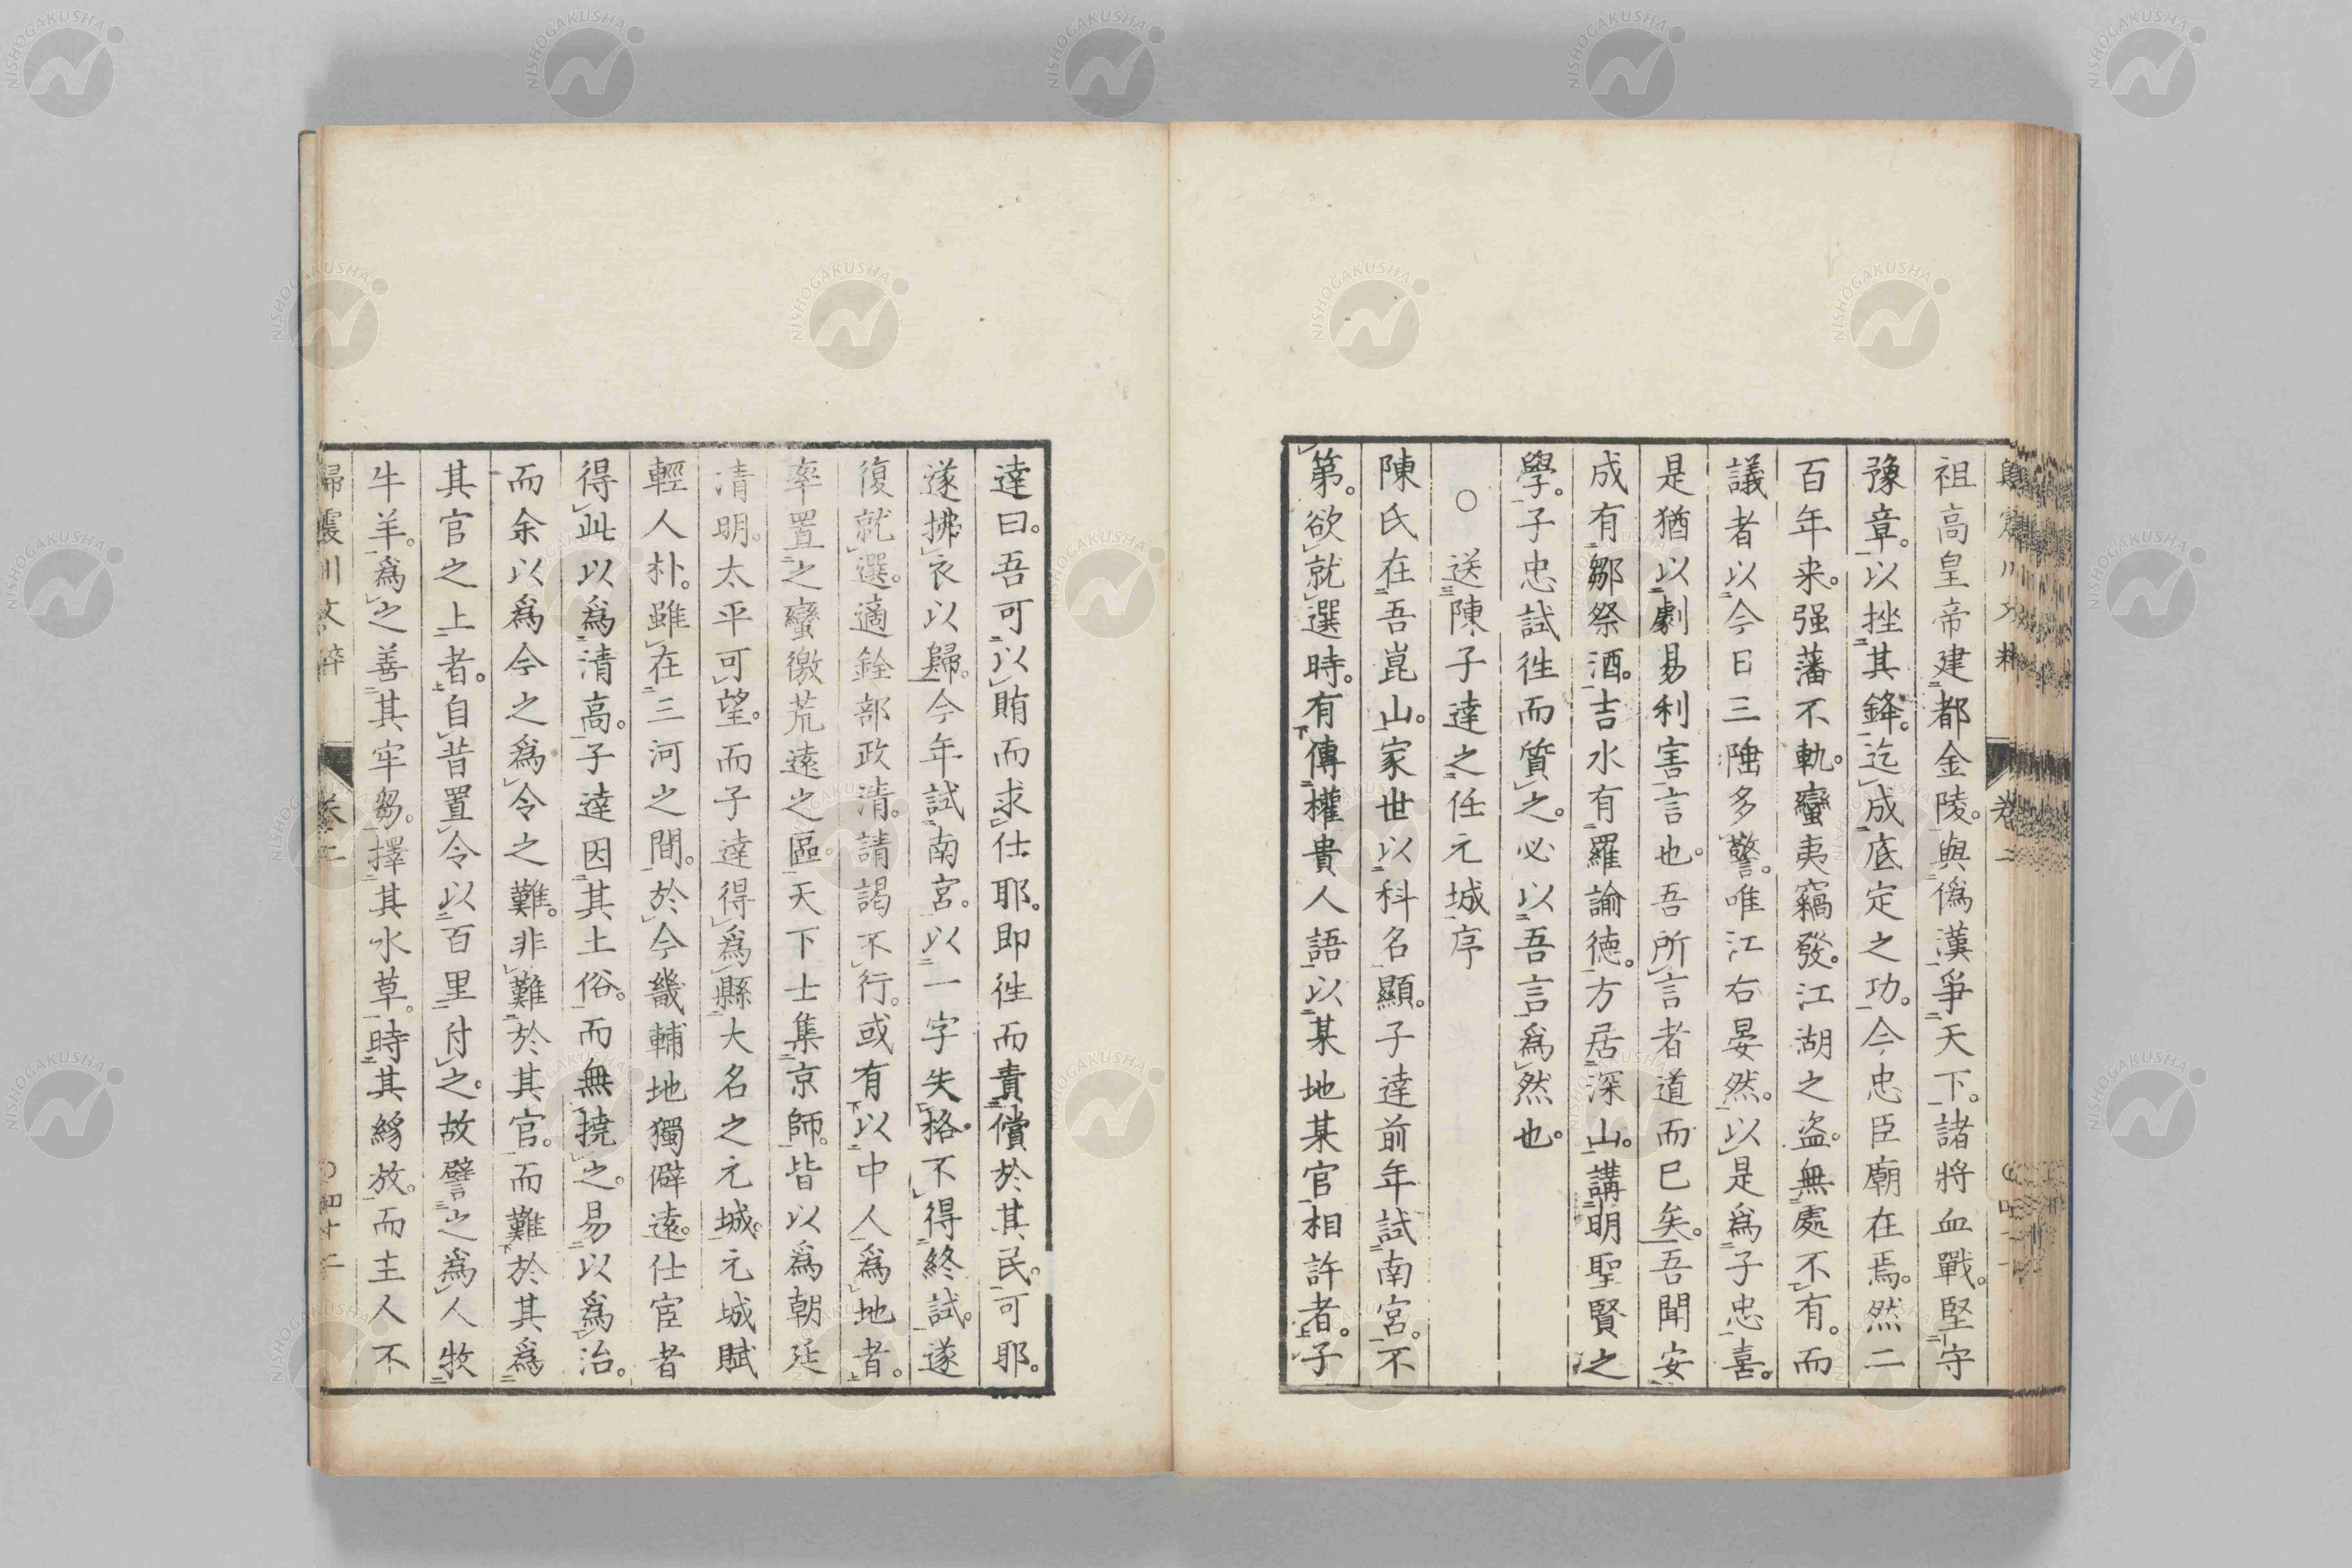 祖高皇帝建都金陵。與僞漢爭天下。諸將血戰。堅守
豫章。以挫其鋒。迄成底定之功。今忠臣廟在焉。然二
百年来。强藩不軌。蠻夷竊發。江湖之盗。無處不有。而
議者以今日三陲多警。唯江右晏然。以是爲子忠喜。
是猶以劇易利害言也。吾所言者道而已矣。吾聞安
成有鄒祭酒。吉水有羅諭德。方居深山。講明聖賢之
學。子忠試往而質之。必以吾言爲然也。
○送陳子達之任元城序
陳氏在吾崑山。家世以科名顯。子達前年試南宮。不
第。欲就選時。有傳權貴人語以某地某官相許者。子
達曰。吾可以賄而求仕耶。即往而責償於其民。可耶。
遂拂衣以歸。今年試南宮。以一字失格。不得終試。遂
復就選。適銓部政清。請謁不行。或有以中人爲地者。
率置之蠻徼荒遠之區。天下士集京師。皆以爲朝廷
清明。太平可望。而子達得爲縣大名之元城。元城賦
輕人朴。雖在三河之間。於今畿輔地獨僻遠。仕宦者
得此以爲清高。子達因其土俗。而無撓之。易以爲治。
而余以爲今之爲令之難。非難於其官。而難於其爲
其官之上者。自昔置令以百里付之。故譬之爲人牧
牛羊。爲之善其牢芻。擇其水草。時其縱放。而主人不
歸震川文粹 卷二 ○四十二